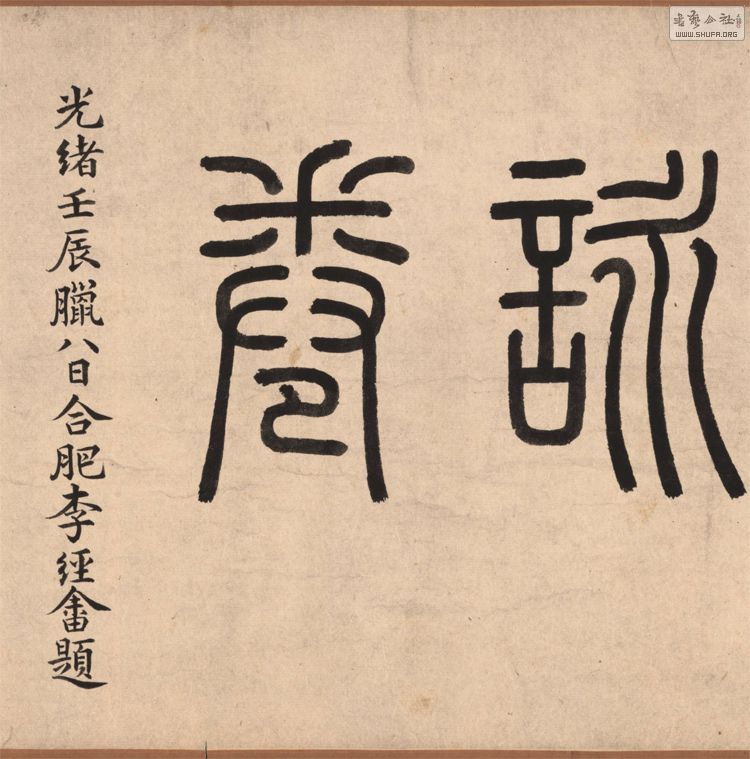 詠
卷
光緒壬辰臘八日合肥李經畬題
書藝公社
WWW.SHUFA.ORG